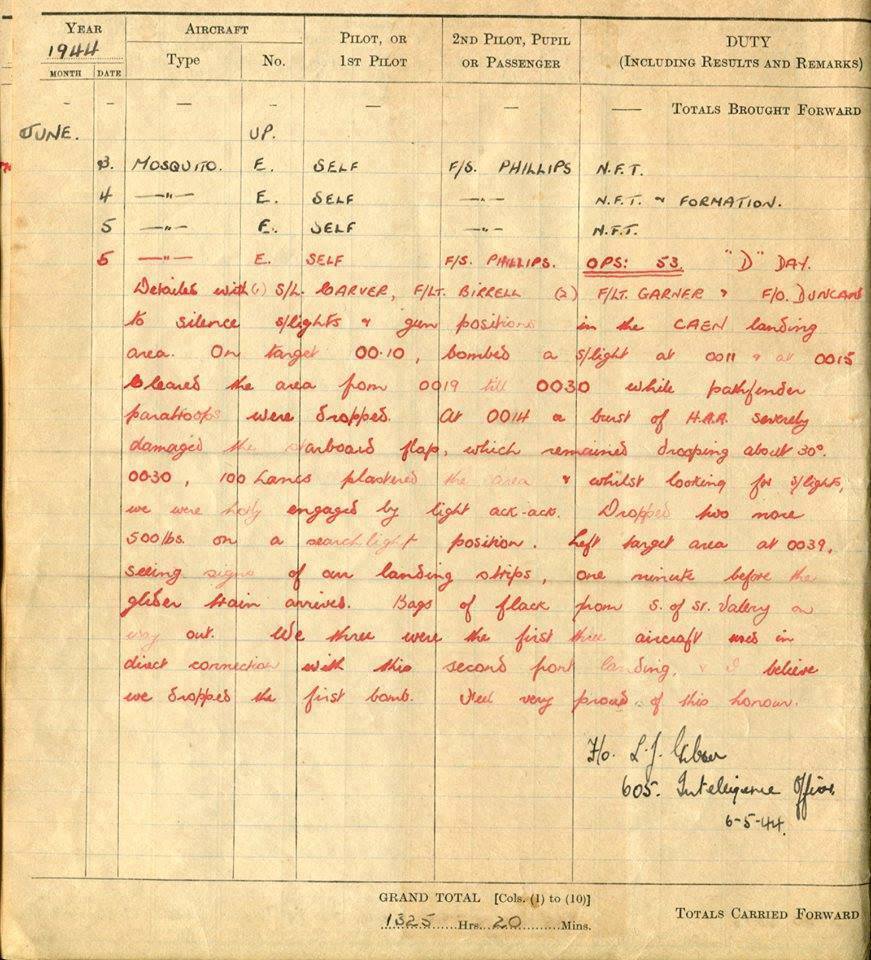 YEAR 1944 AIRCRAFT PILOT, OR 1ST PILOT 2ND PILOT, PUPIL OR PASSENGER DUTY (INCLUDING RESULTS AND REMARKS)
MONTH DATE Type No.
— — — — — — — TOTALS BROUGHT FORWARD
JUNE. UP.
3. MOSQUITO. E. SELF F/S. PHILLIPS N.F.T.
4 —"— E. SELF —"— N.F.T. & FORMATION.
5 —"— E. SELF —"— N.F.T.
5 —"— E. SELF F/S. PHILLIPS. OPS: 53. "D" DAY.
Detailed with (1) S/L. CARVER, F/LT. BIRRELL (2) F/LT. GARNER & F/O. DUNCAN
to silence s/lights & gun positions in the CAEN landing
area. On target 00·10, bombed a s/light at 0011 & at 0015
Cleared the area from 0019 till 0030 while pathfinder
paratroops were dropped. At 0014 a burst of H.A.A. severely
damaged the starboard flap, which remained drooping about 30°.
0030, 100 Lancs plastered the area & whilst looking for s/lights,
we were hotly engaged by light ack-ack. Dropped two more
500lbs. on a searchlight position. Left target area at 0039,
seeing signs of our landing strips, one minute before the
glider train arrived. Bags of flack from S. of St. Valery on
way out. We three were the first three aircraft used in
direct connection with this second front landing, & I believe
we dropped the first bomb. Feel very proud of this honour.
F/o. L. J.
605. Intelligence Officer
6-5-44.
GRAND TOTAL [Cols. (1) to (10)]
1325 Hrs. 20 Mins. TOTALS CARRIED FORWARD